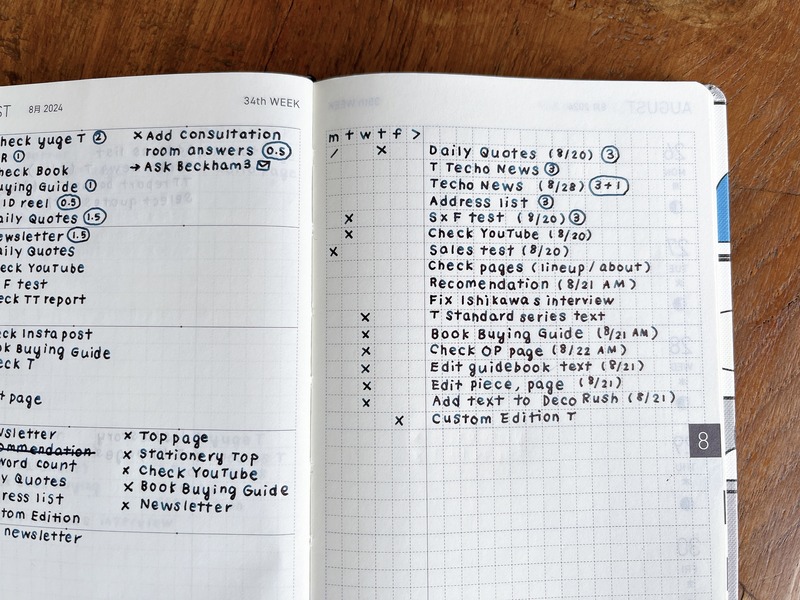 8月 2024
34th WEEK
check yuge T 2
1
check Book
Buying Guide 1
ID reel 0.5
Daily Quotes 1.5
Newsletter 1.5
Daily Quotes
Check YouTube
F test
Check TT report
Check Insta post
Book Buying Guide
Check T
page
Newsletter
Recommendation
word count
Quotes
Address list
Custom Edition
newsletter
× Add consultation
room answers 0.5
→ Ask Beckham3
× Top page
× Stationery Top
× Check YouTube
× Book Buying Guide
× Newsletter
m t w t f >
/ × Daily Quotes (8/20) 3
T Techo News 3
Techo News (8/28) 3+1
Address list 3
× S×F test (8/20) 3
× Check YouTube (8/20)
× Sales test (8/20)
Check pages (lineup/about)
Recomendation (8/21 AM)
Fix Ishikawas interview
× T Standard series text
× Book Buying Guide (8/21 AM)
× Check OP page (8/22 AM)
× Edit guidebook text (8/21)
× Edit piece, page (8/21)
× Add text to Deco Rush (8/21)
× Custom Edition T
8